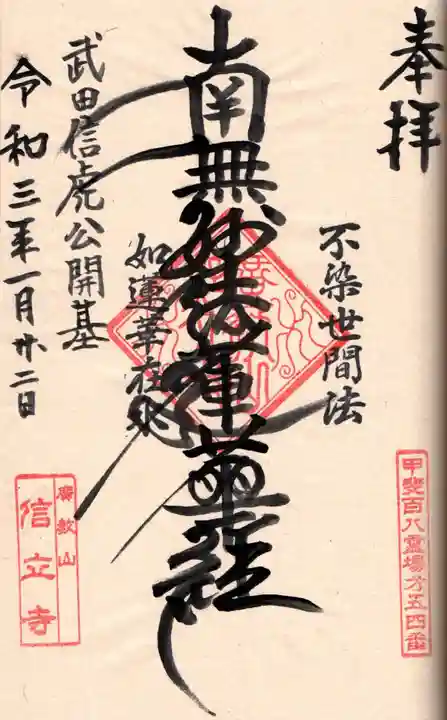 奉拝
甲斐百八霊場第五四番
不染世間法
南無妙法蓮華経
如蓮華在水
武田信虎公開基
令和三年一月廿二日
廣教山
信立寺